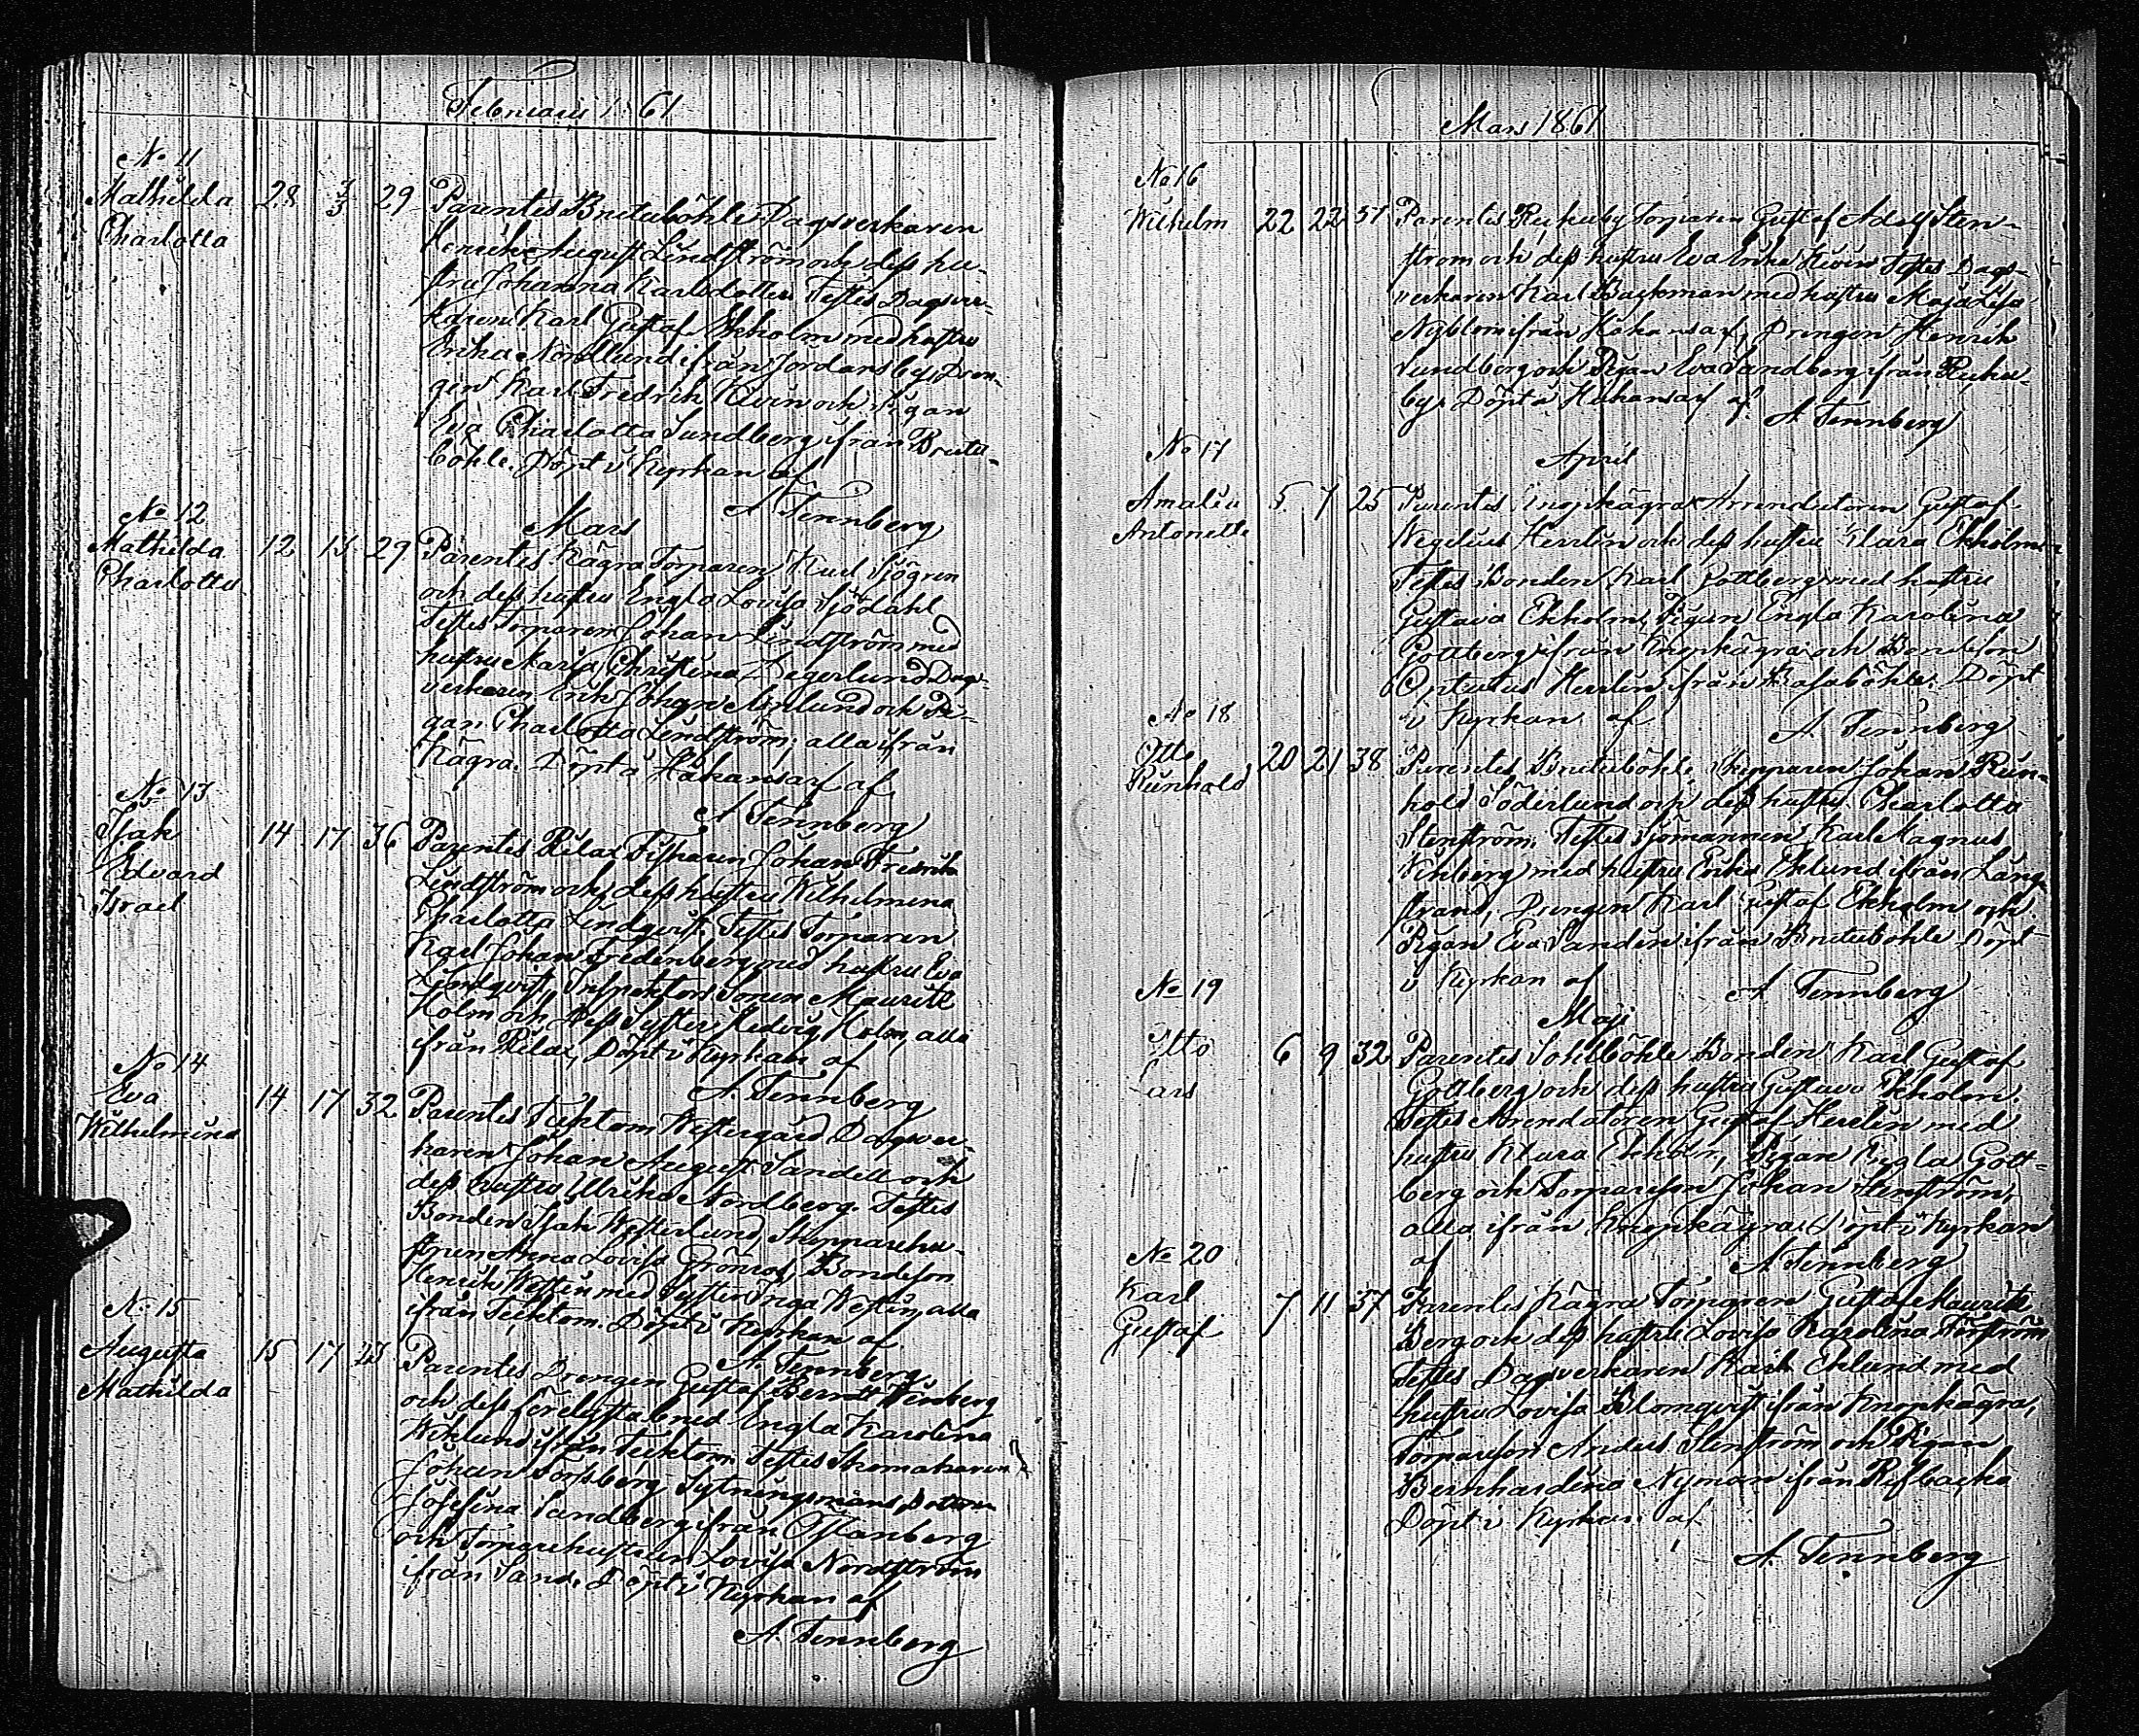 Februari 1861
No 11
Mathilda 28 2/3 29 Parentes Bruteböhle Dagsverkaren
Charlotta Henrik August Lindström och dess hu-
stru Johanna Karlsdotter. Testes Dagsver-
karen Karl Gustaf Ekholm med hustru
Erika Nordlund ifrån Jordansby, Dren-
gen Karl Fredrik Kevin och Pigan
Eva Charlotta Sundberg ifrån Brute-
böhle. Döpt i Kyrkan af
A. Tennberg
Mars
No 12
Mathilda 12 29 Parentes Kägra Torparen Karl Sjögren
Charlotta och dess hustru Engla Lovisa Sjödahl
Testes Torparen Johan Lindström med
hustru Maria Christina Degerlund Dags-
verkaren Erik Johan och Pi-
gan Charlotta Lindström; alla ifrån
Kägra. Döpt å Håkansarf af
A. Tennberg
No 13
Isak 14 17 36 Parentes Rilax Fiskaren Johan Fredrik
Edvard Lindström och dess hustru Wilhelmina
Israel Charlotta Lindqvist. Testes Torparen
Karl Johan Fredenberg med hustru Eva
Lindqvist, Inspektors Sonen Mauritz
Holm och dess Syster Hedvig Holm, alla
ifrån Rilax, Döpt i Kyrkan af
A. Tennberg
No 14
Eva 14 17 32 Parentes Tecktom Westergård Dagsver-
Wilhelmina karen Johan August Sandell och
dess hustru Ulrika Nordberg. Testes
Bonden Isak Westerlund, Skepparehu-
strun Anna Lovisa Grönros, Bondeson
Henrik Westin med Syster Inga Westin, alla
ifrån Tecktom. Döpt i Kyrkan af
A. Tennberg
No 15
Augusta 15 17 23 Parentes Drengen Gustaf Berndt Winberg
Mathilda och dess förelofvade brud Engla Karolina
Wiklund ifrån Tecktom Testes Skomakaren
Johan Forssberg Sytningsmans Dottren
Josefina Sandberg ifrån Ostanberg
och Torparehustrun Lovisa Nordström
ifrån Sand. Döpt i Kyrkan af
A. Tennberg
Mars 1861
No 16
Wilhelm 22 22 37 Parentes Torparen Gustaf Adolf Sten-
ström och dess hustru Eva Erika Kevin Testes Dags-
verkaren Karl Backman med hustru Maja Lisa
Nyblom ifrån Håkansarf, Drengen Henrik
Lundborg och Pigan Eva Sandberg ifrån
by. Döpt å Håkansarf af
A. Tennberg
April
No 17
Amalia 5 7 25 Parentes Knopkägra Arrendatoren Gustaf
Antonette Wegelius Herrlin och dess hustru Klara Ekholm
Testes Bonden Karl Gottberg med hustru
Gustava Ekholm, Pigan Engla Karolina
Gottberg ifrån Knopkägra och Bondeson
Optatus Herrlin ifrån Basaböhle. Döpt
i Kyrkan af A. Tennberg
No 18
Otto 20 21 38 Parentes Bruteböhle, Skepparen Johan Rein-
Reinhold hold Söderlund och dess hustru Charlotta
Stenström. Testes Sjömannen Karl Magnus
Vikberg med hustru Erika Eklund ifrån Lång-
strand, Drengen Karl Gustaf Ekholm och
Pigan Eva Sandin ifrån Bruteböhle Döpt
i Kyrkan af A. Tennberg
Maji
No 19
Otto 6 9 32 Parentes Sohlböhle Bonden Karl Gustaf
Lars Gottberg och dess hustru Gustava Ekholm.
Testes Arrendatoren Gustaf Herrlin med
hustru Klara Ekholm, Pigan Engla Gott-
berg och Torpareson Johan Stenström,
alla ifrån Knopkägra. Döpt i Kyrkan
af A. Tennberg
No 20
Karl 7 11 37 Parentes Kägra Torparen Gustaf Mauritz
Gustaf Berg och dess hustru Lovisa Karolina Törström
Testes Dagsverkaren Karl Eklund med
hustru Lovisa Blomqvist ifrån Knopkägra,
Torpareson Anders Stenström och Pigan
Bernhardina Nyman ifrån Refbacka
Döpt i Kyrkan af
A. Tennberg